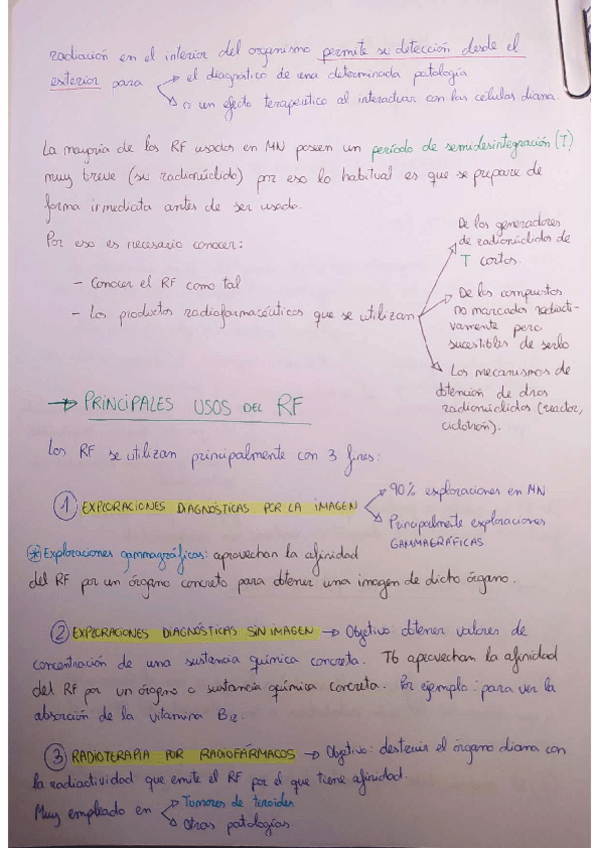 radiación en el interior del organismo permite su detección desde el
exterior para → el diagnóstico de una determinada patología
→ o un efecto terapeútico al interactuar con las células diana.
La mayoría de los RF usados en MN poseen un período de semidesintegración (T)
muy breve (su radionúclido) por eso lo habitual es que se prepare de
forma inmediata antes de ser usado.
Por eso es necesario conocer:
- Conocer el RF como tal
- Los productos radiofarmacéuticos que se utilizan
De los generadores
de radionúclidos de
T cortos.
De los compuestos
no marcados radiacti-
vamente pero
sucestibles de serlo
Los mecanismos de
obtención de dros
radionúclidos (reactor,
ciclotrón).
→ PRINCIPALES USOS DEL RF
Los RF se utilizan principalmente con 3 fines:
1 EXPLORACIONES DIAGNÓSTICAS POR LA IMAGEN → 90% exploraciones en MN
→ Principalmente exploraciones
GAMMAGRÁFICAS
* Exploraciones gammagráficas: aprovechan la afinidad
del RF por un órgano concreto para obtener una imagen de dicho órgano.
2 EXPLORACIONES DIAGNÓSTICAS SIN IMAGEN → Objetivo: obtener valores de
concentración de una sustancia química concreta. Tb aprovechan la afinidad
del RF por un órgano o sustancia química concreta. Por ejemplo: para ver la
absorción de la vitamina B12.
3 RADIOTERAPIA POR RADIOFÁRMACOS → Objetivo: destruir el órgano diana con
la radiactividad que emite el RF por el que tiene afinidad.
Muy empleado en → Tumores de tiroides
→ Otras patologías.